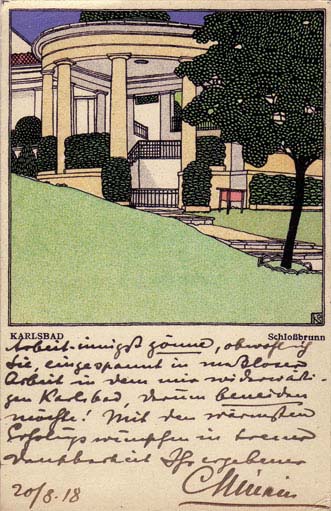 KARLSBAD Schloßbrunn
Arbeit innigst gönne, obwohl ich
Sie, eingespannt in maßloser
Arbeit in dem mir widerwärti-
gen Karlsbad, darum beneiden
möchte! Mit den wärmsten
Erfolgswünschen in treuer
Dankbarkeit Ihr ergebener
20/8-18